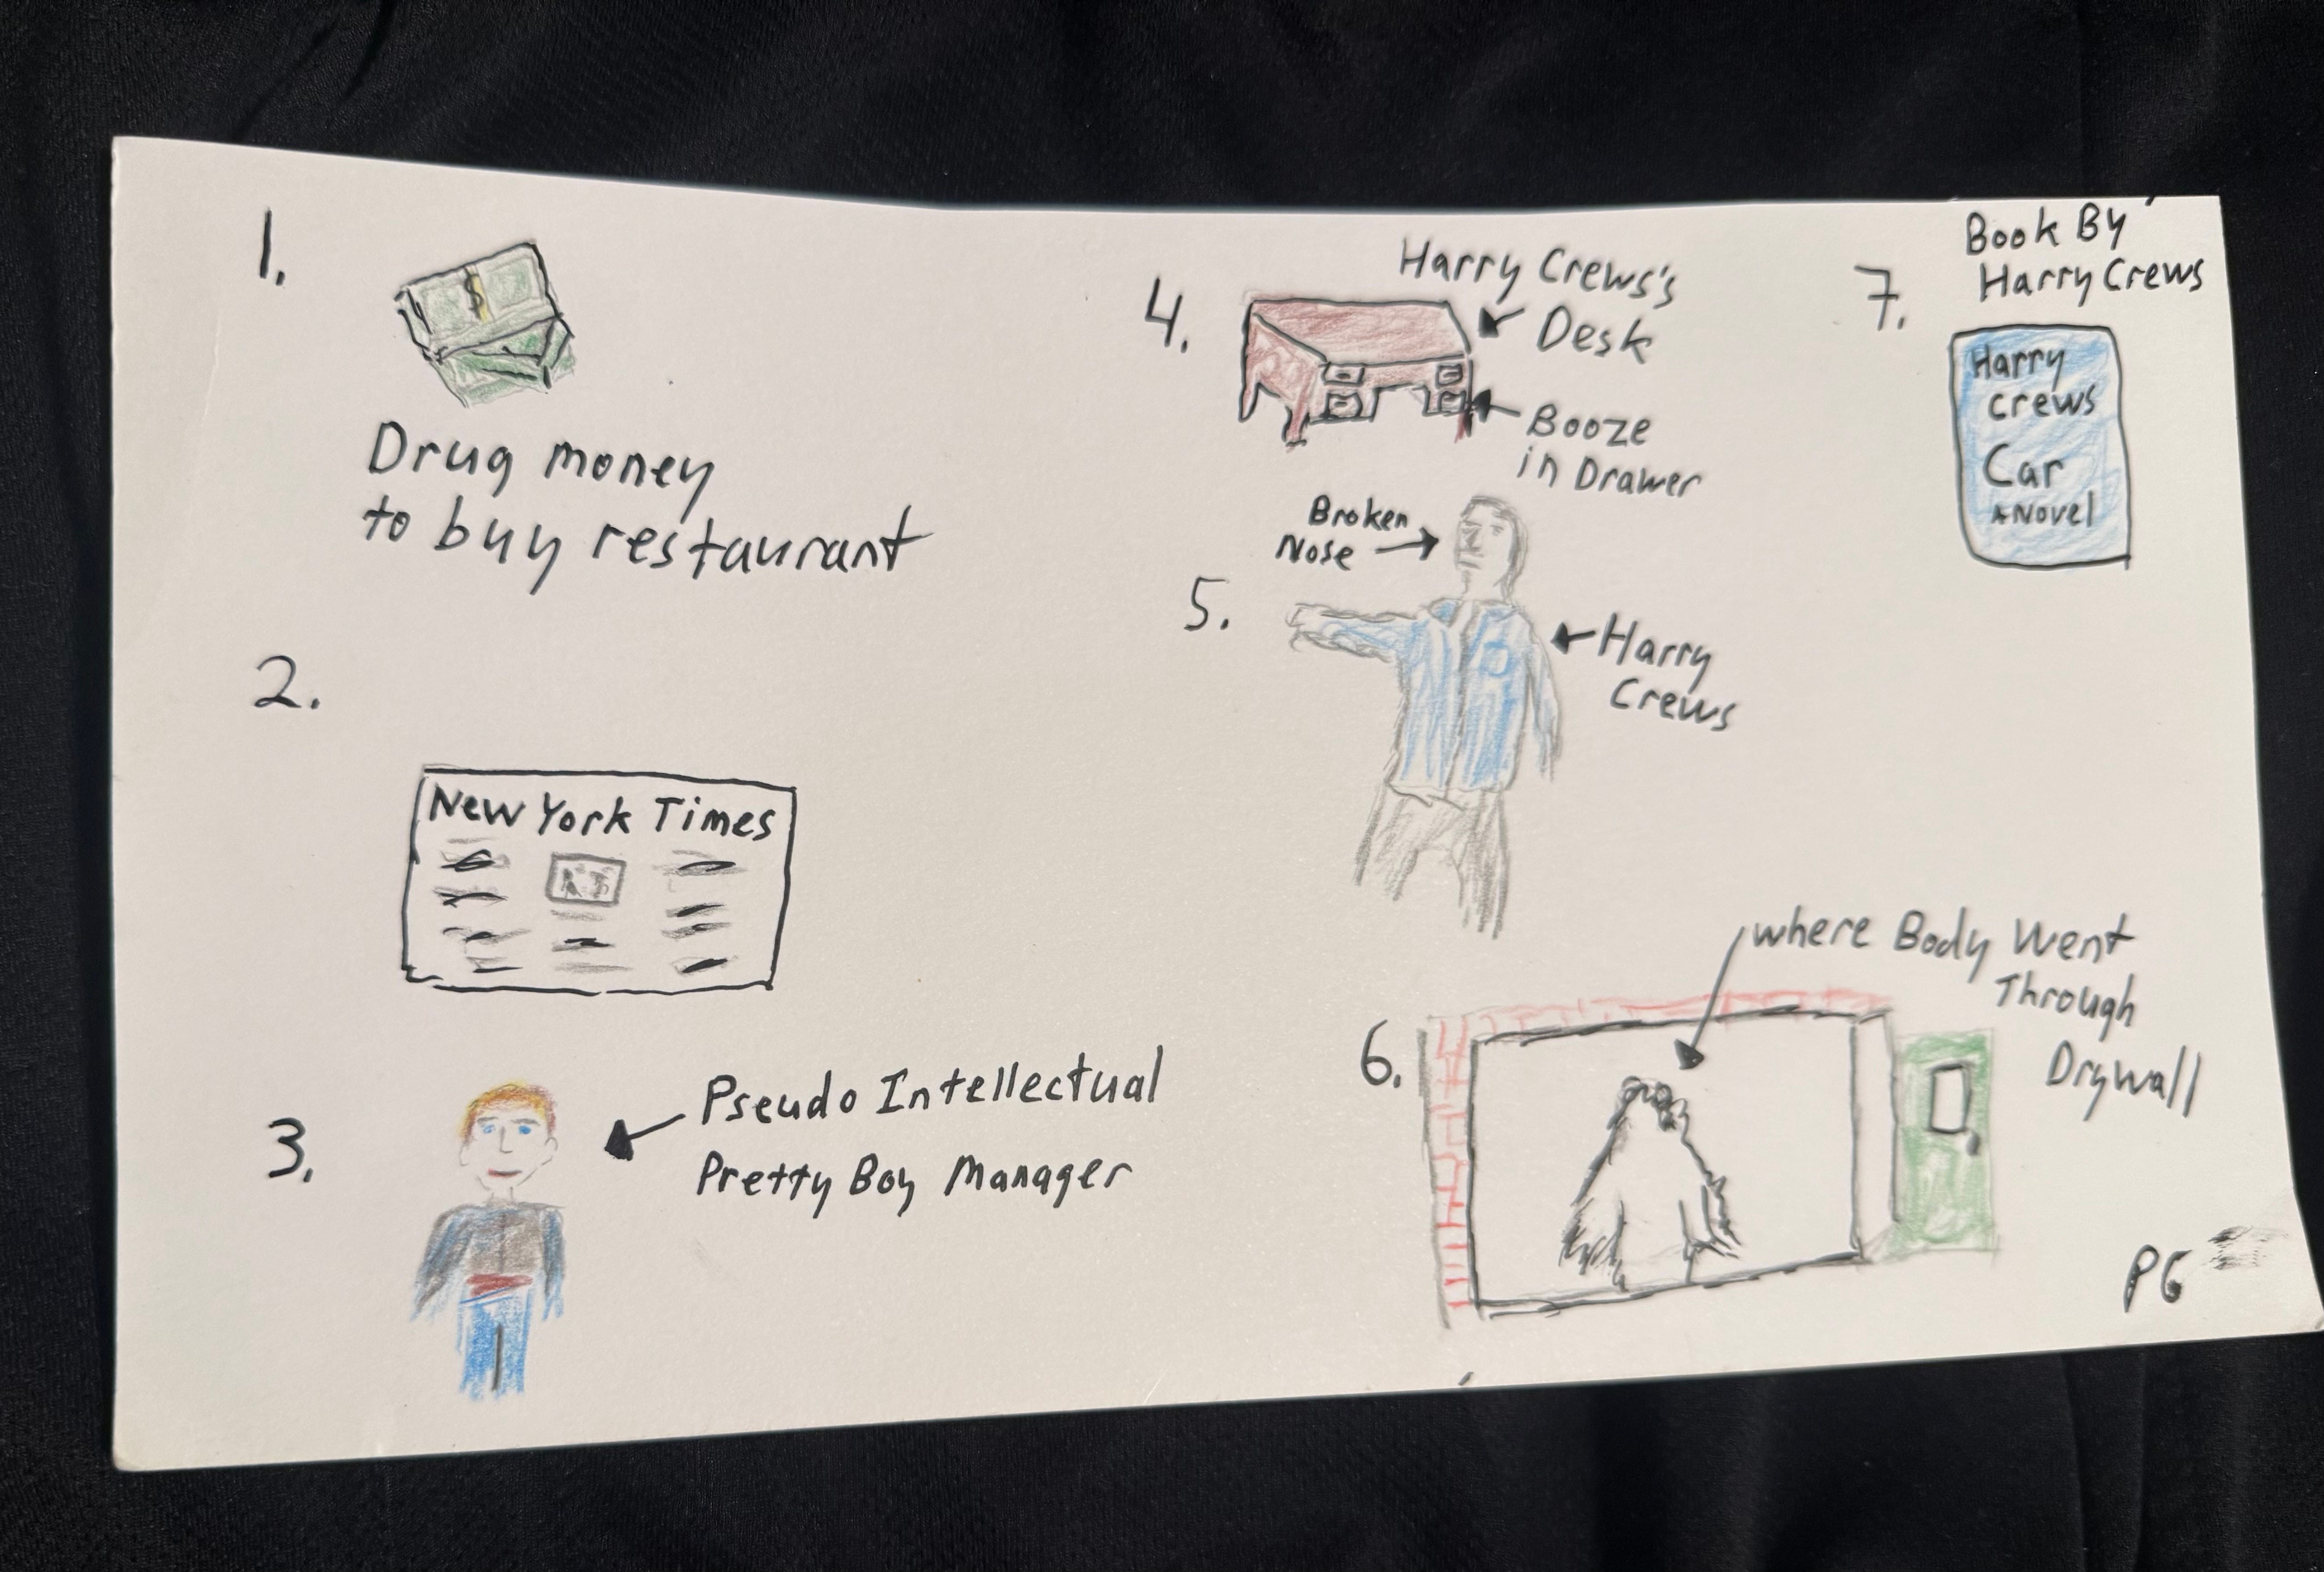 1.
$
Drug money
to buy restaurant
2.
New York Times
3.
Pseudo Intellectual
Pretty Boy Manager
4.
Harry Crews's
Desk
Booze
in Drawer
Broken
Nose
5.
Harry
Crews
where Body Went
Through
Drywall
6.
7.
Book By
Harry Crews
Harry
Crews
Car
A Novel
PG